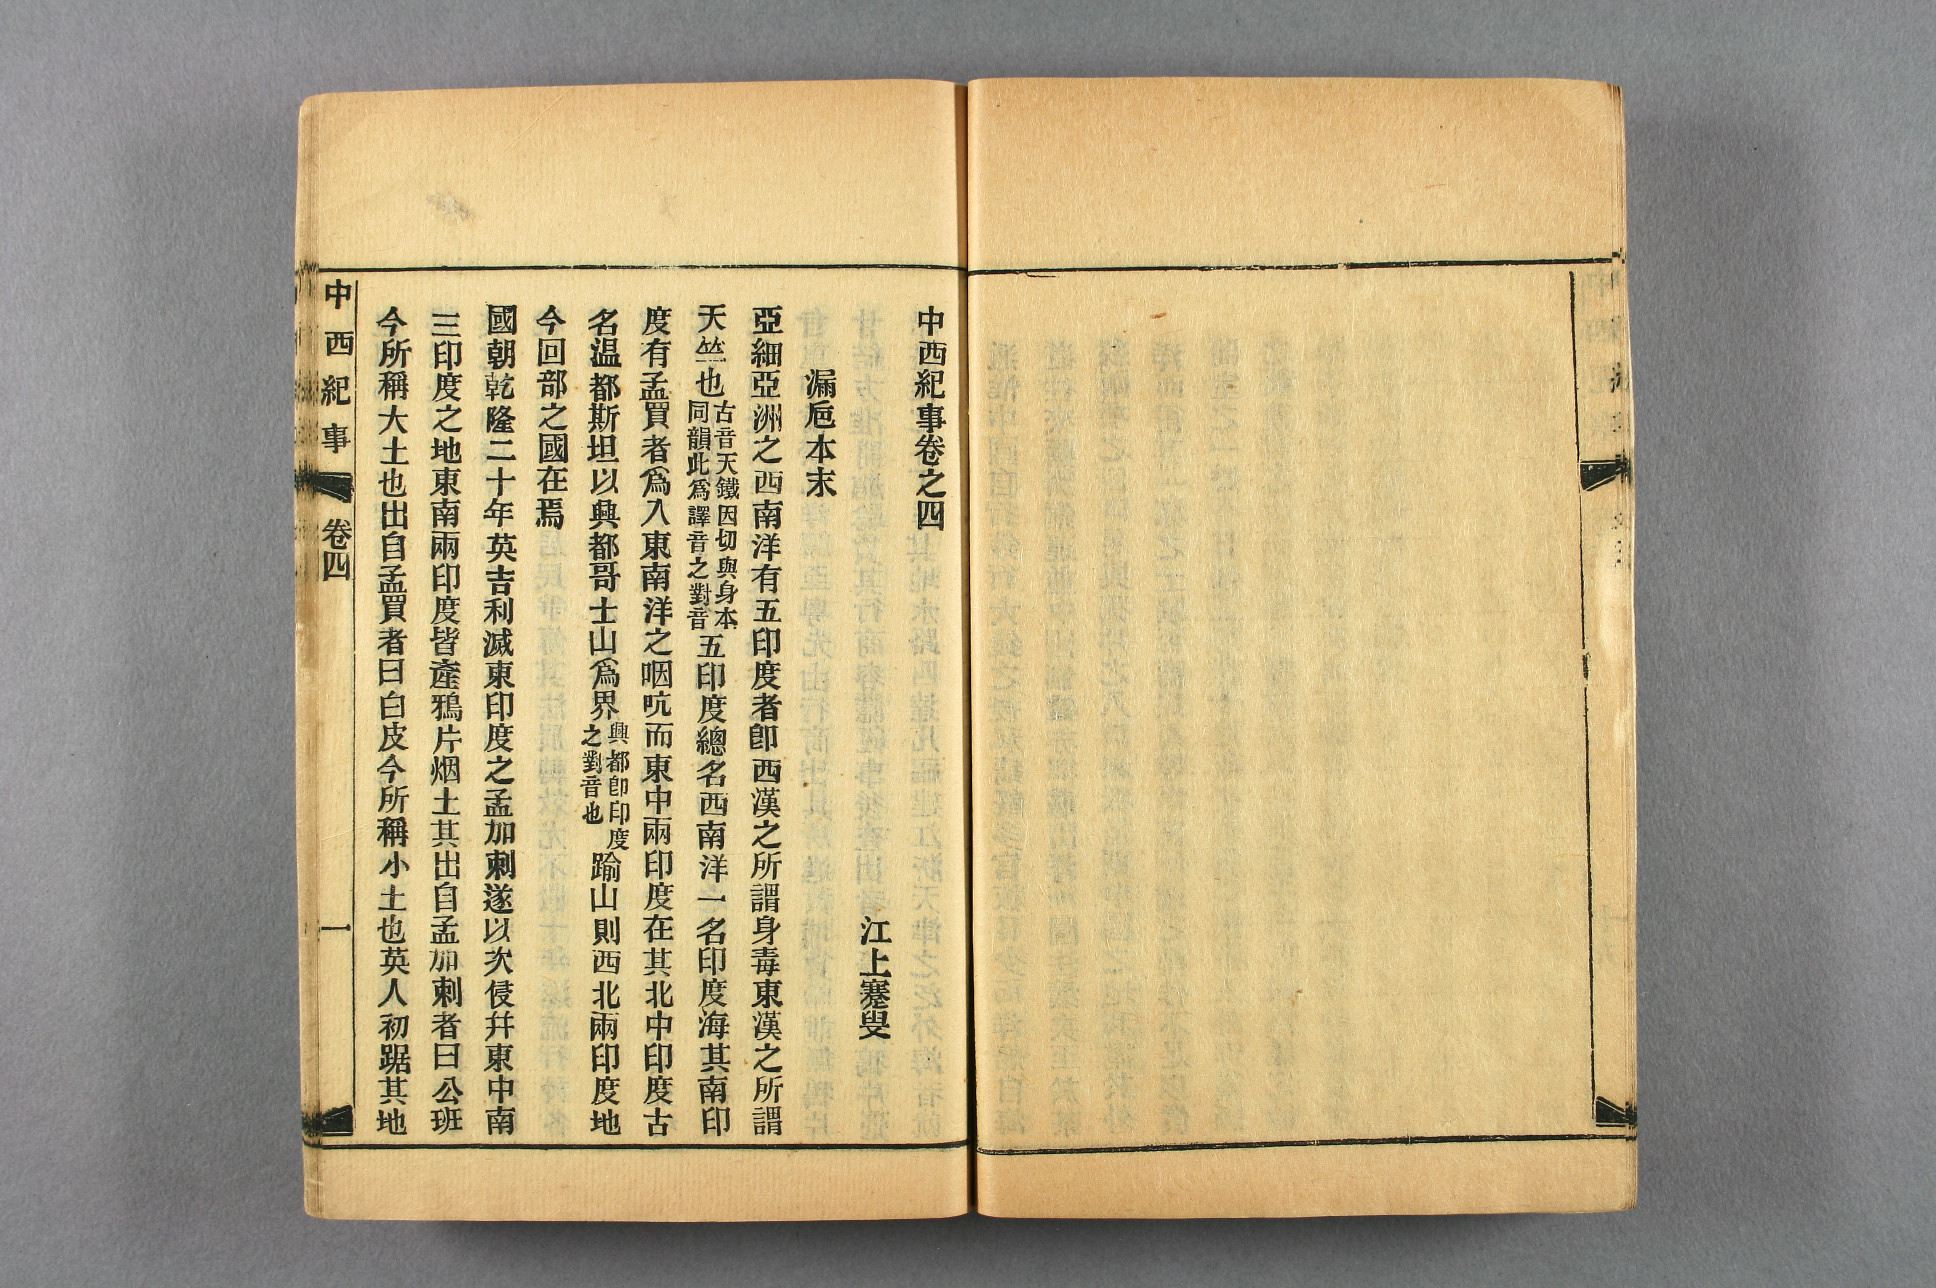 中西紀事卷之四
江上蹇叟
漏巵本末
亞細亞洲之西南洋有五印度者卽西漢之所謂身毒東漢之所謂
天竺也古音天鐵因切與身本同韻此爲譯音之對音五印度總名西南洋一名印度海其南印
度有孟買者爲入東南洋之咽吭而東中兩印度在其北中印度古
名温都斯坦以興都哥士山爲界興都卽印度之對音也踰山則西北兩印度地
今回部之國在焉
國朝乾隆二十年英吉利滅東印度之孟加剌遂以次侵幷東中南
三印度之地東南兩印度皆產鴉片烟土其出自孟加剌者曰公班
今所稱大土也出自孟買者曰白皮今所稱小土也英人初踞其地
中西紀事 卷四 一